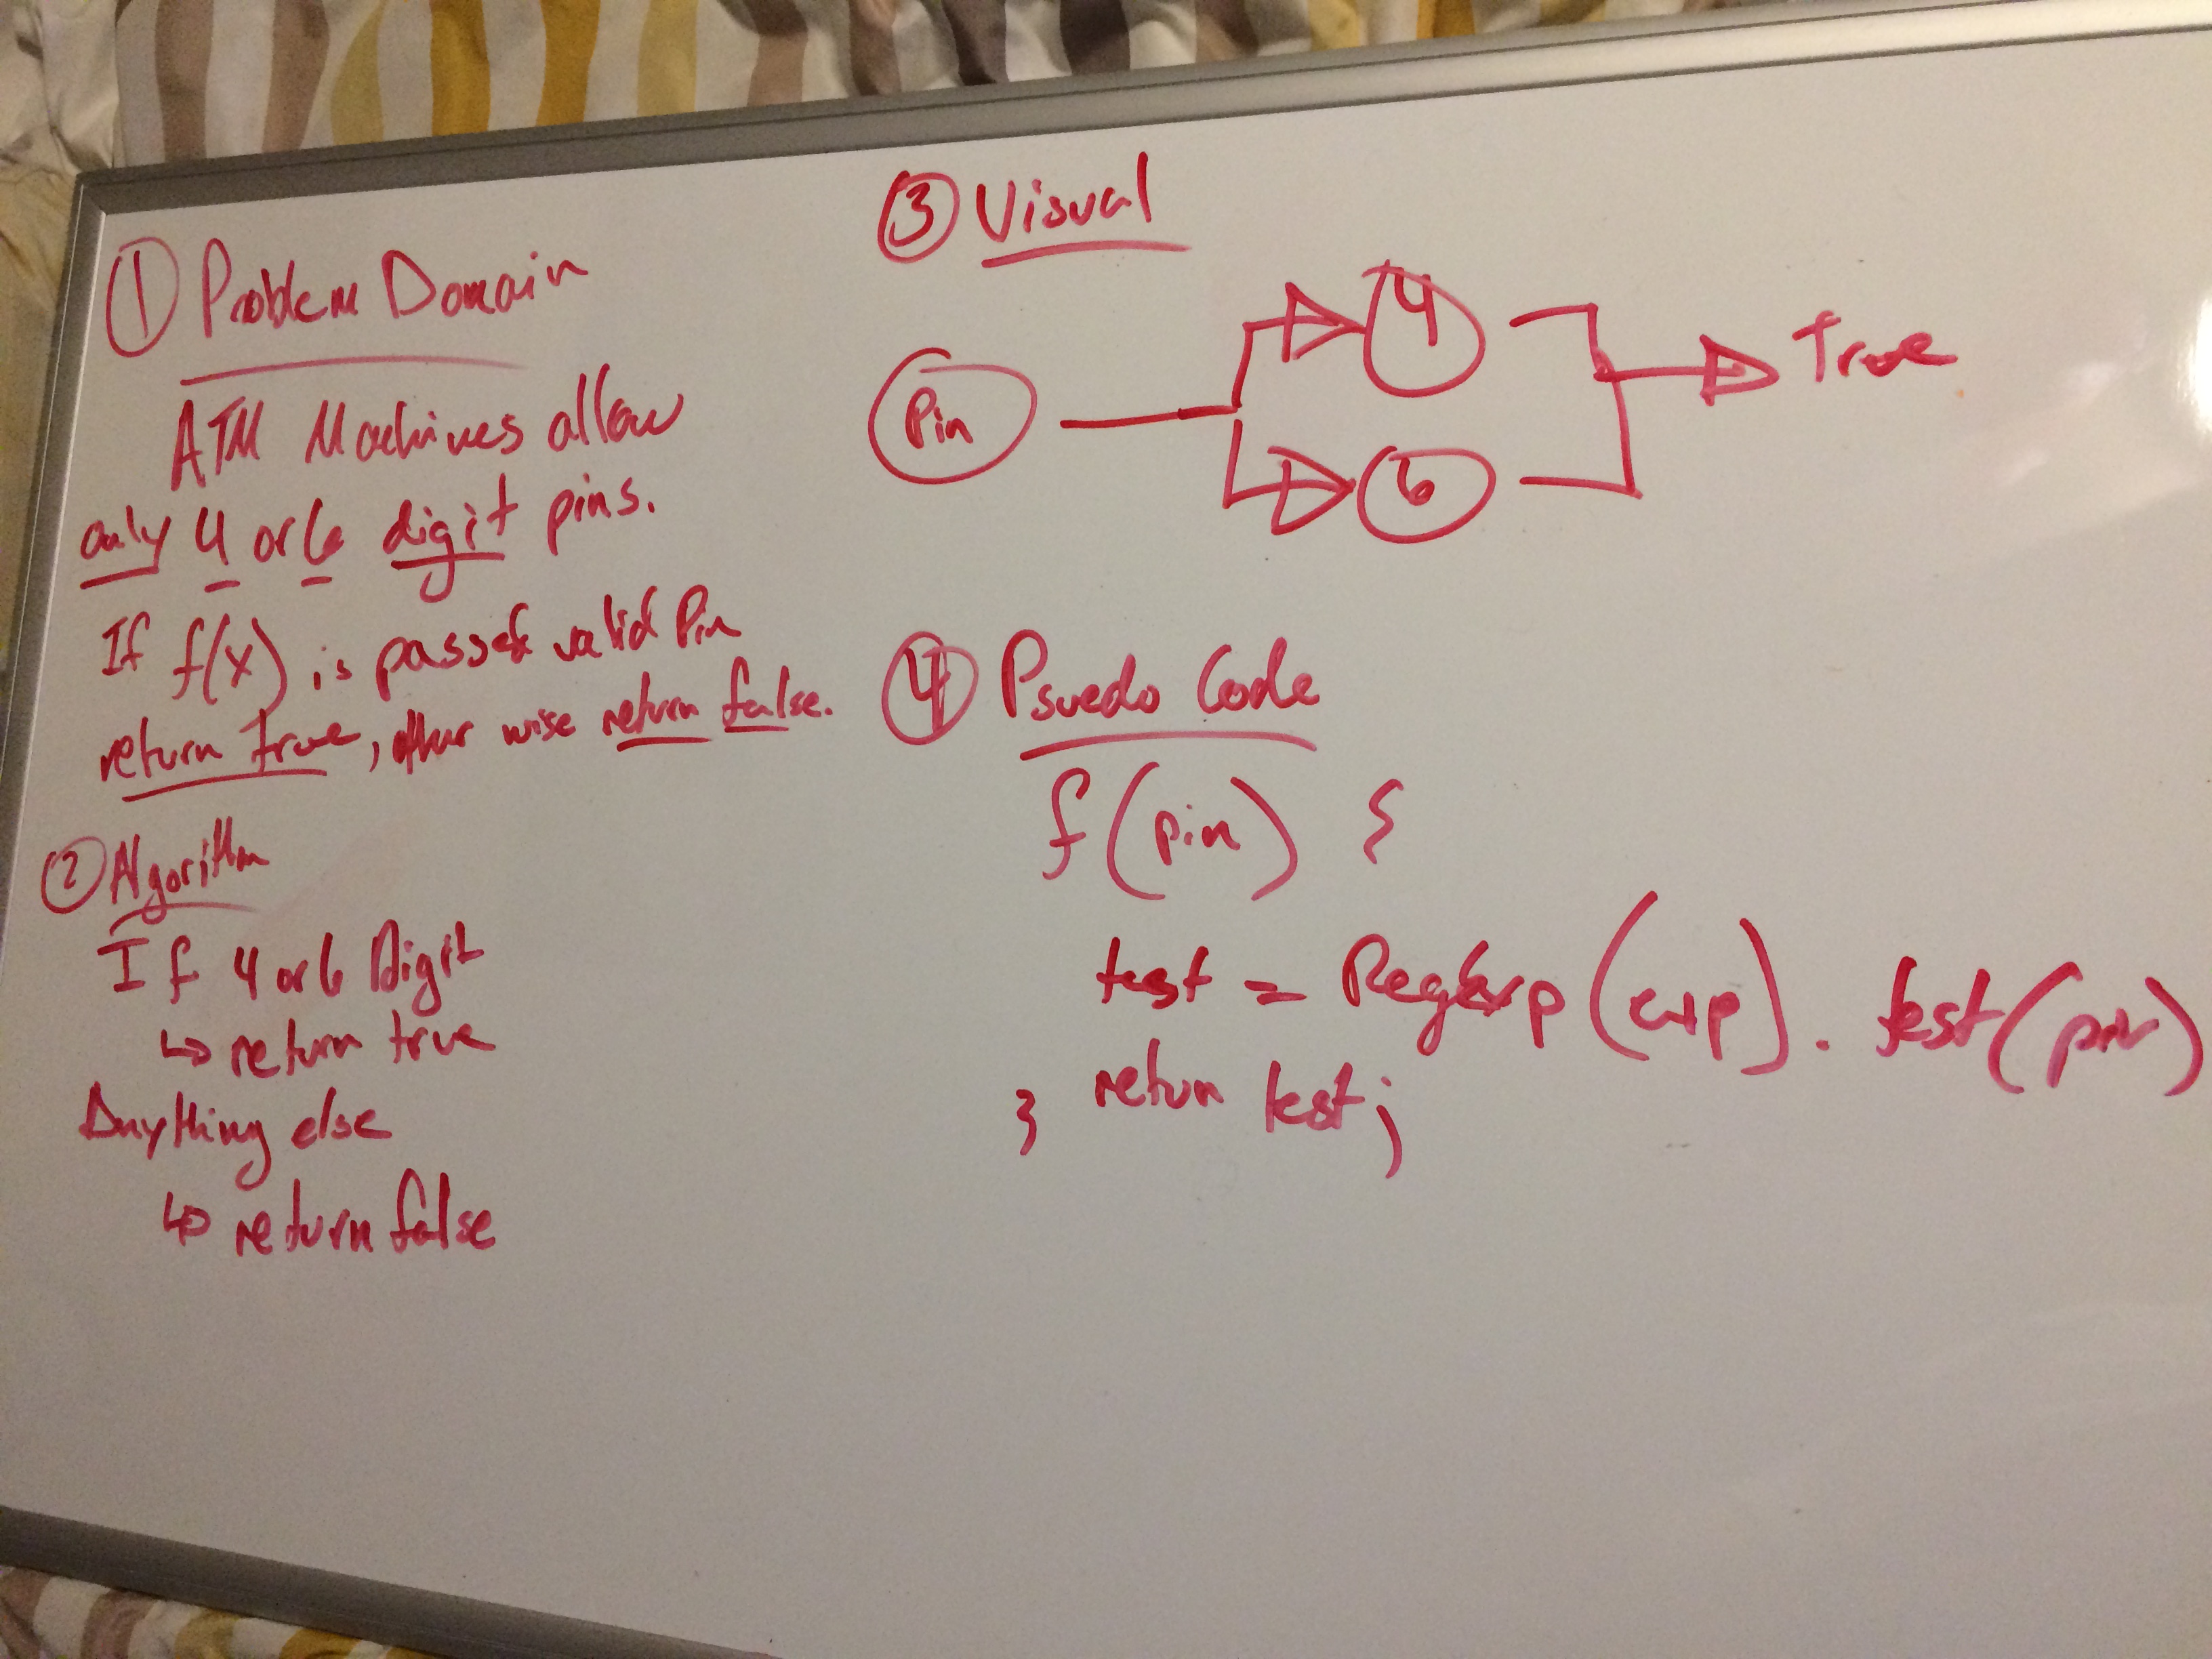 ① Problem Domain
ATM Machines allow
only 4 or 6 digit pins.
If f(x) is passed valid Pin
return true, other wise return false.
② Algorithm
If 4 or 6 Digit
↳ return true
Anything else
↳ return false
③ Visual
Pin
4
6
True
④ Psuedo Code
f(pin) {
test = RegExp(exp).test(pin)
return test;
}